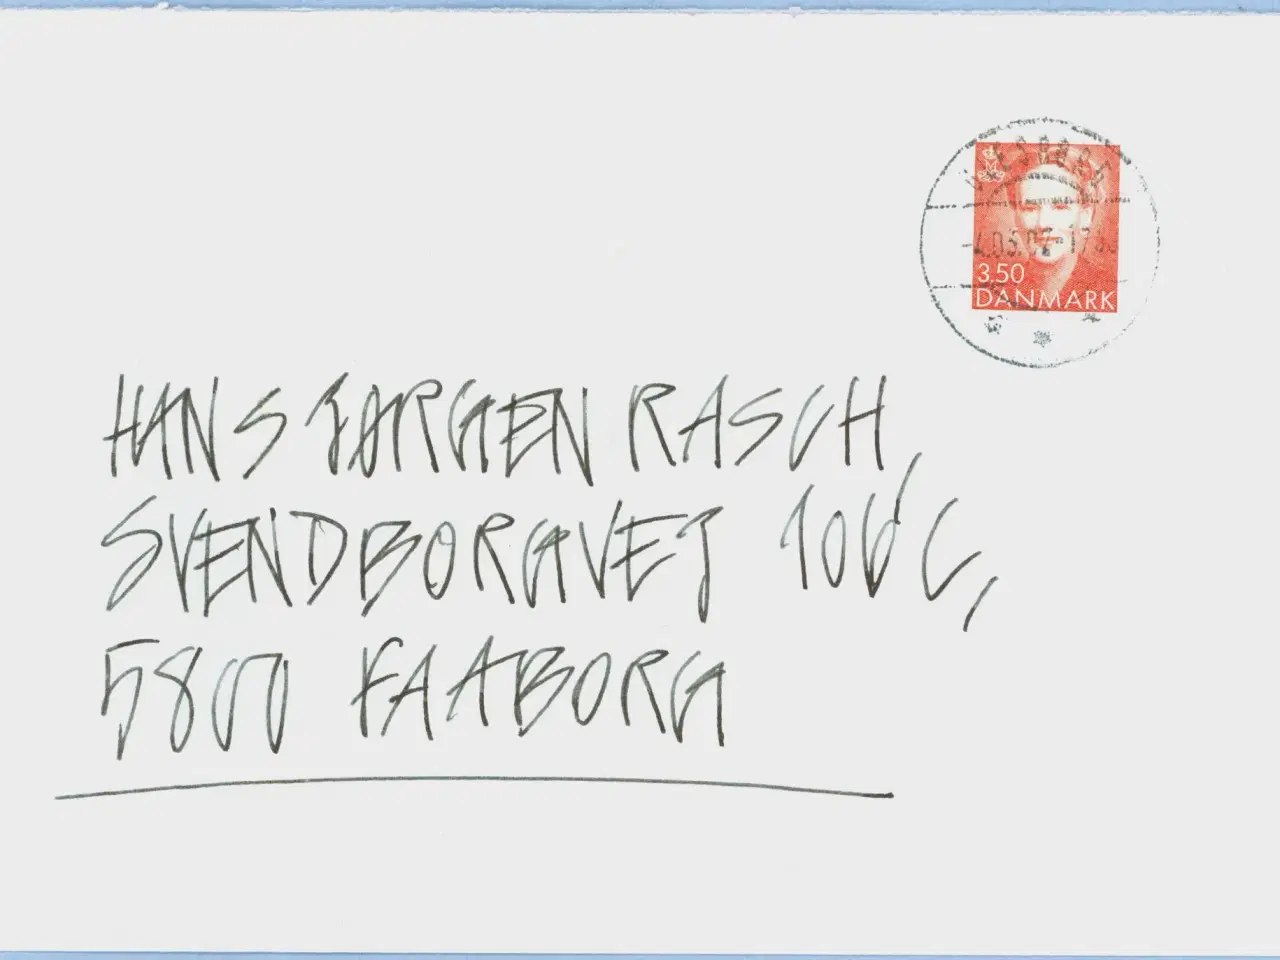 3.50
DANMARK
HANS JØRGEN RASCH,
SVENDBORGVEJ 106 C,
5800 FAABORG